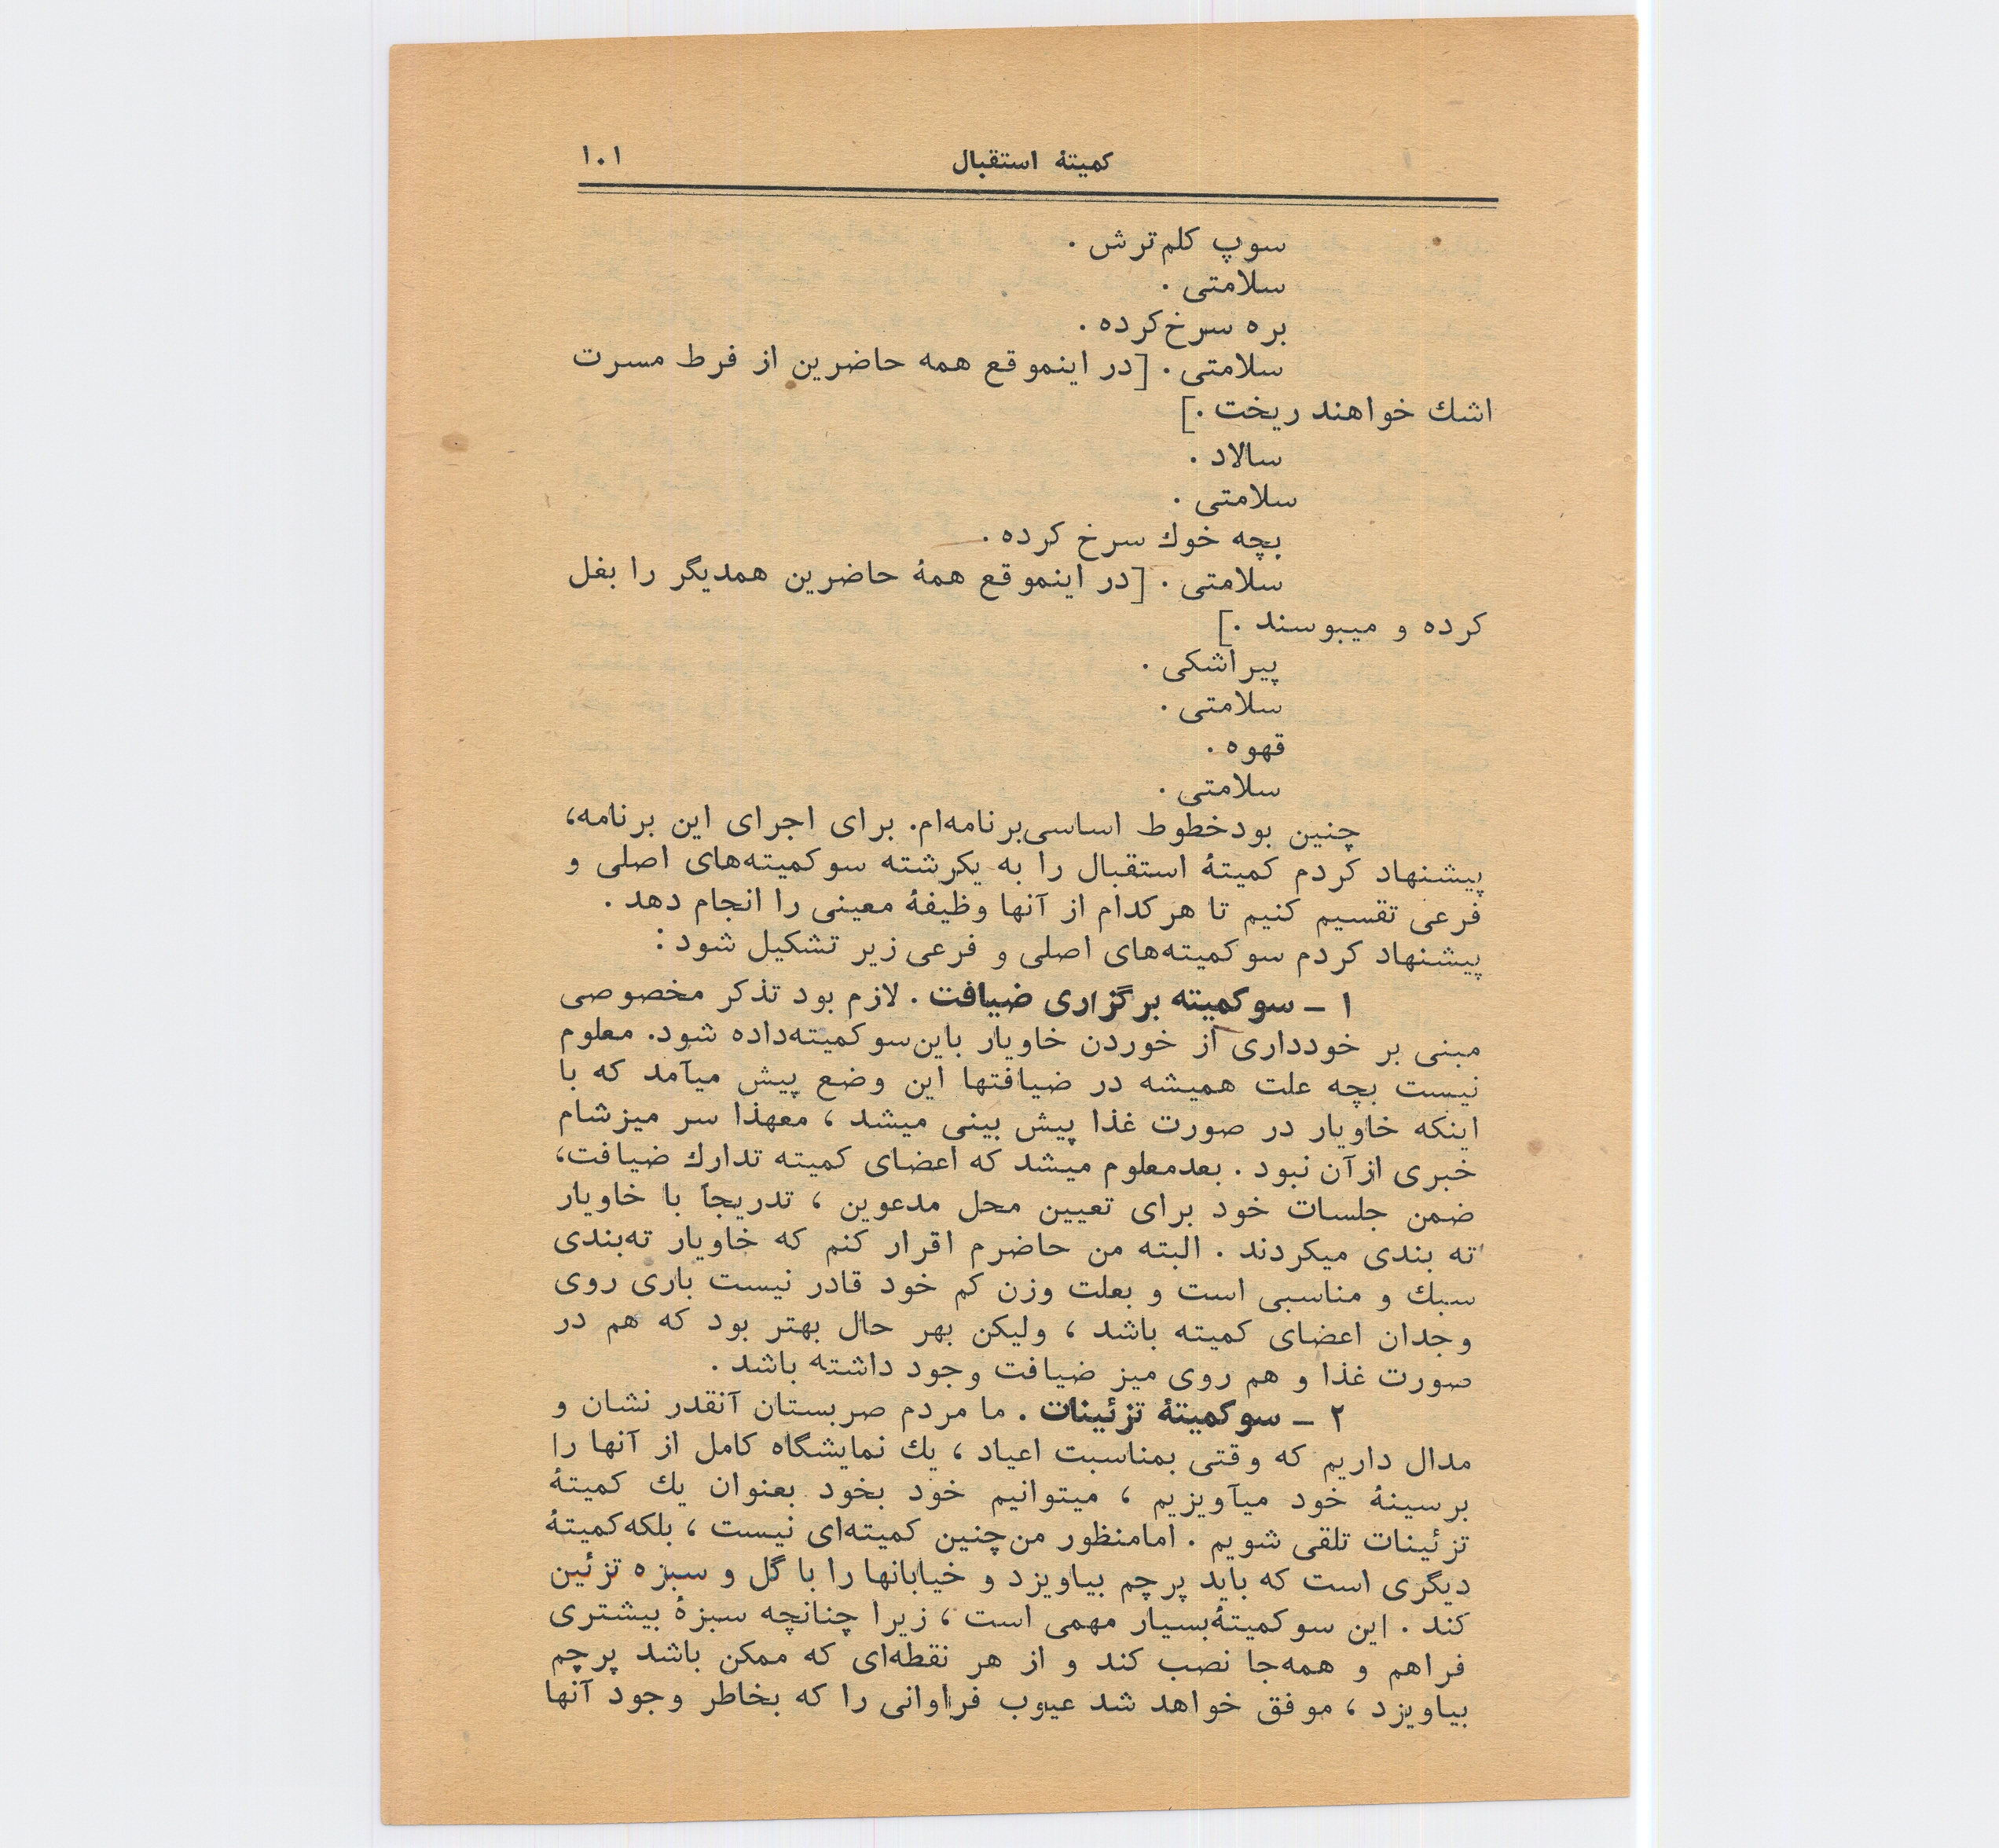 کمیتهٔ استقبال ۱۰۱
سوپ کلم‌ترش .
سلامتی .
بره سرخ‌کرده .
سلامتی . [در اینموقع همه حاضرین از فرط مسرت
اشك خواهند ریخت .]
سالاد .
سلامتی .
بچه خوك سرخ کرده .
سلامتی . [در اینموقع همهٔ حاضرین همدیگر را بغل
کرده و میبوسند .]
پیراشکی .
سلامتی .
قهوه .
سلامتی .
چنین بودخطوط اساسی‌برنامه‌ام. برای اجرای این برنامه،
پیشنهاد کردم کمیتهٔ استقبال را به یکرشته سوکمیته‌های اصلی و
فرعی تقسیم کنیم تا هرکدام از آنها وظیفهٔ معینی را انجام دهد .
پیشنهاد کردم سوکمیته‌های اصلی و فرعی زیر تشکیل شود :
۱ ـ سوکمیته برگزاری ضیافت . لازم بود تذکر مخصوصی
مبنی بر خودداری از خوردن خاویار باین‌سوکمیته‌داده شود. معلوم
نیست بچه علت همیشه در ضیافتها این وضع پیش میآمد که با
اینکه خاویار در صورت غذا پیش بینی میشد ، معهذا سر میزشام
خبری ازآن نبود . بعدمعلوم میشد که اعضای کمیته تدارك ضیافت،
ضمن جلسات خود برای تعیین محل مدعوین ، تدریجاً با خاویار
ته بندی میکردند . البته من حاضرم اقرار کنم که خاویار ته‌بندی
سبك و مناسبی است و بعلت وزن کم خود قادر نیست باری روی
وجدان اعضای کمیته باشد ، ولیکن بهر حال بهتر بود که هم در
صورت غذا و هم روی میز ضیافت وجود داشته باشد .
۲ ـ سوکمیتهٔ تزئینات . ما مردم صربستان آنقدر نشان و
مدال داریم که وقتی بمناسبت اعیاد ، یك نمایشگاه کامل از آنها را
برسینهٔ خود میآویزیم ، میتوانیم خود بخود بعنوان یك کمیتهٔ
تزئینات تلقی شویم . امامنظور من‌چنین کمیته‌ای نیست ، بلکه‌کمیتهٔ
دیگری است که باید پرچم بیاویزد و خیابانها را با گل و سبزه تزئین
کند . این سوکمیتهٔ‌بسیار مهمی است ، زیرا چنانچه سبزهٔ بیشتری
فراهم و همه‌جا نصب کند و از هر نقطه‌ای که ممکن باشد پرچم
بیاویزد ، موفق خواهد شد عیوب فراوانی را که بخاطر وجود آنها